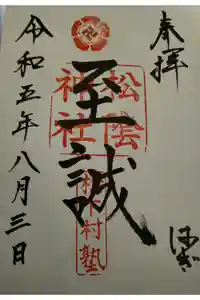 奉拝
はぎ
至誠
松陰神社
松下村塾
令和五年八月三日